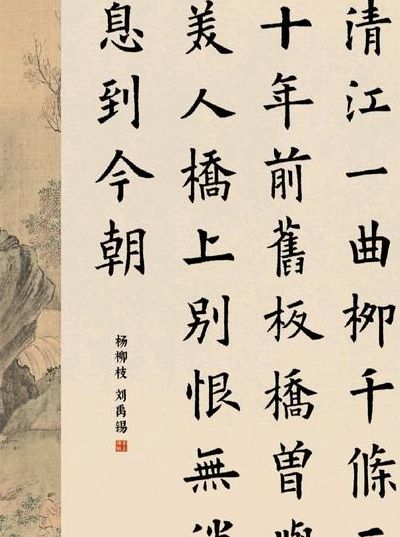 清江一曲柳千條
十年前舊板橋曾
美人橋上別恨無
息到今朝
杨柳枝 刘禹锡